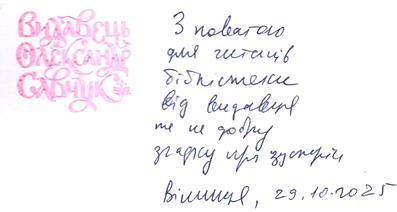 Видавець
Олександр
Савчук
З повагою
для читачів
бібліотеки
від видавця
та на добру
згадку про зустріч
Вільнюс, 29.10.2025